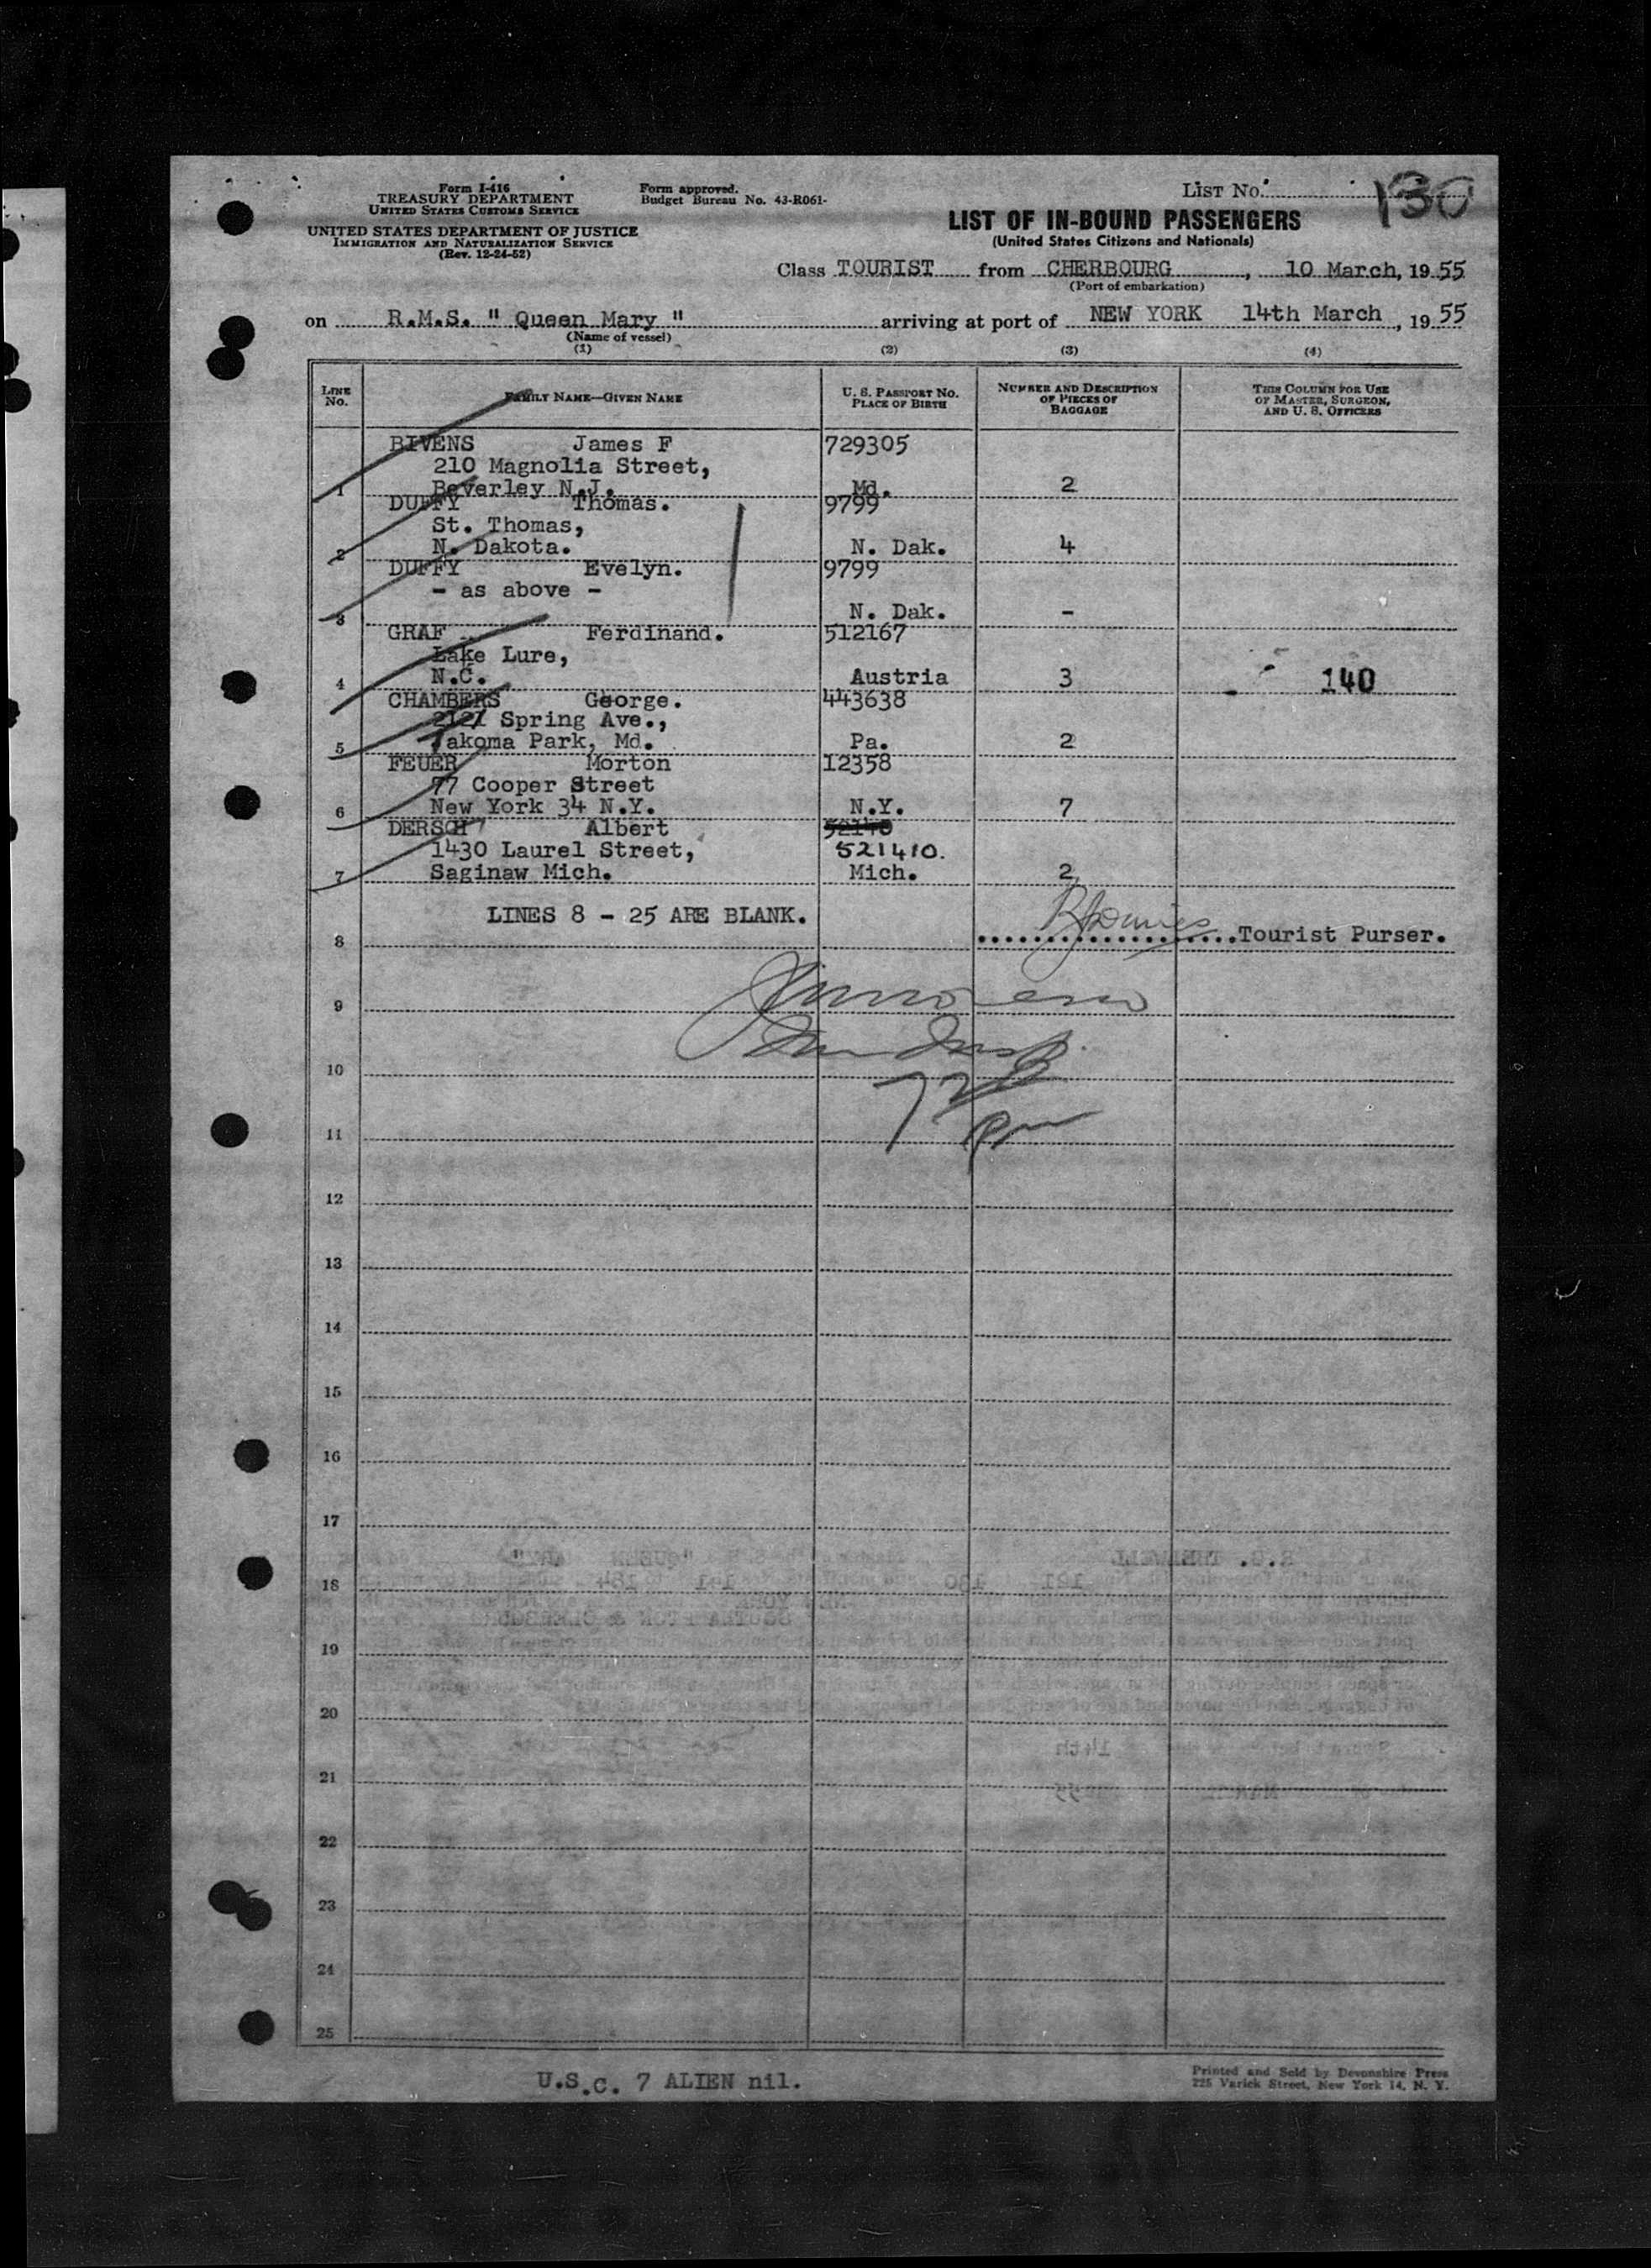 Form I-416
TREASURY DEPARTMENT
UNITED STATES CUSTOMS SERVICE
UNITED STATES DEPARTMENT OF JUSTICE
IMMIGRATION AND NATURALIZATION SERVICE
(Rev. 12-24-52)
Form approved.
Budget Bureau No. 43-R061-
LIST NO. 130
LIST OF IN-BOUND PASSENGERS
(United States Citizens and Nationals)
Class TOURIST from CHERBOURG, 10 March, 1955
(Port of embarkation)
on R.M.S. " Queen Mary " arriving at port of NEW YORK 14th March, 1955
(Name of vessel)
(1) (2) (3) (4)
LINE NO. FAMILY NAME—GIVEN NAME U. S. PASSPORT NO. PLACE OF BIRTH NUMBER AND DESCRIPTION OF PIECES OF BAGGAGE THIS COLUMN FOR USE OF MASTER, SURGEON, AND U. S. OFFICERS
BIVENS James F 729305
210 Magnolia Street,
1 Beverley N.J. Md. 2
DUFFY Thomas. 9799
St. Thomas,
2 N. Dakota. N. Dak. 4
DUFFY Evelyn. 9799
- as above -
3 N. Dak. -
GRAF Ferdinand. 512167
Lake Lure,
4 N.C. Austria 3 140
CHAMBERS George. 443638
2121 Spring Ave.,
5 Takoma Park, Md. Pa. 2
FEUER Morton 12358
77 Cooper Street
6 New York 34 N.Y. N.Y. 7
DERSCH Albert 52140
1430 Laurel Street, 521410.
7 Saginaw Mich. Mich. 2
LINES 8 - 25 ARE BLANK.
8 ....................Tourist Purser.
9
10
11
12
13
14
15
16
17
18
19
20
21
22
23
24
25
U.S.C. 7 ALIEN nil.
Printed and Sold by Devonshire Press
225 Varick Street, New York 14, N. Y.